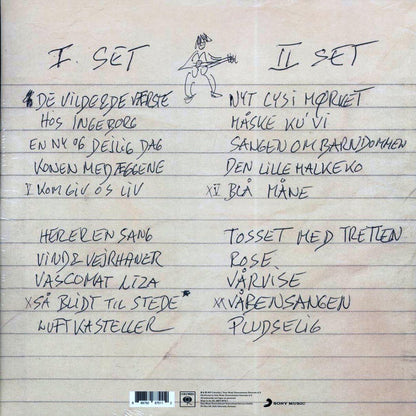 I. SET
DE VILDE & DE VÆRSTE
HOS INGEBORG
EN NY OG DEJLIG DAG
KONEN MED ÆGGENE
V KOM GIV OS LIV
HER ER EN SANG
VIND & VEJRHANER
VASCOMAT LIZA
X SÅ BLIDT TIL STEDE*
LUFTKASTELLER
II SET
NYT LYS I MØRKET
MÅSKE KU' VI
SANGEN OM BARNDOMMEN
DEN LILLE MALKEKO
XV BLÅ MÅNE
TOSSET MED TRETTEN
ROSE
VÅRVISE
XX VÅBENSANGEN
PLUDSELIG
COLUMBIA
SONY MUSIC